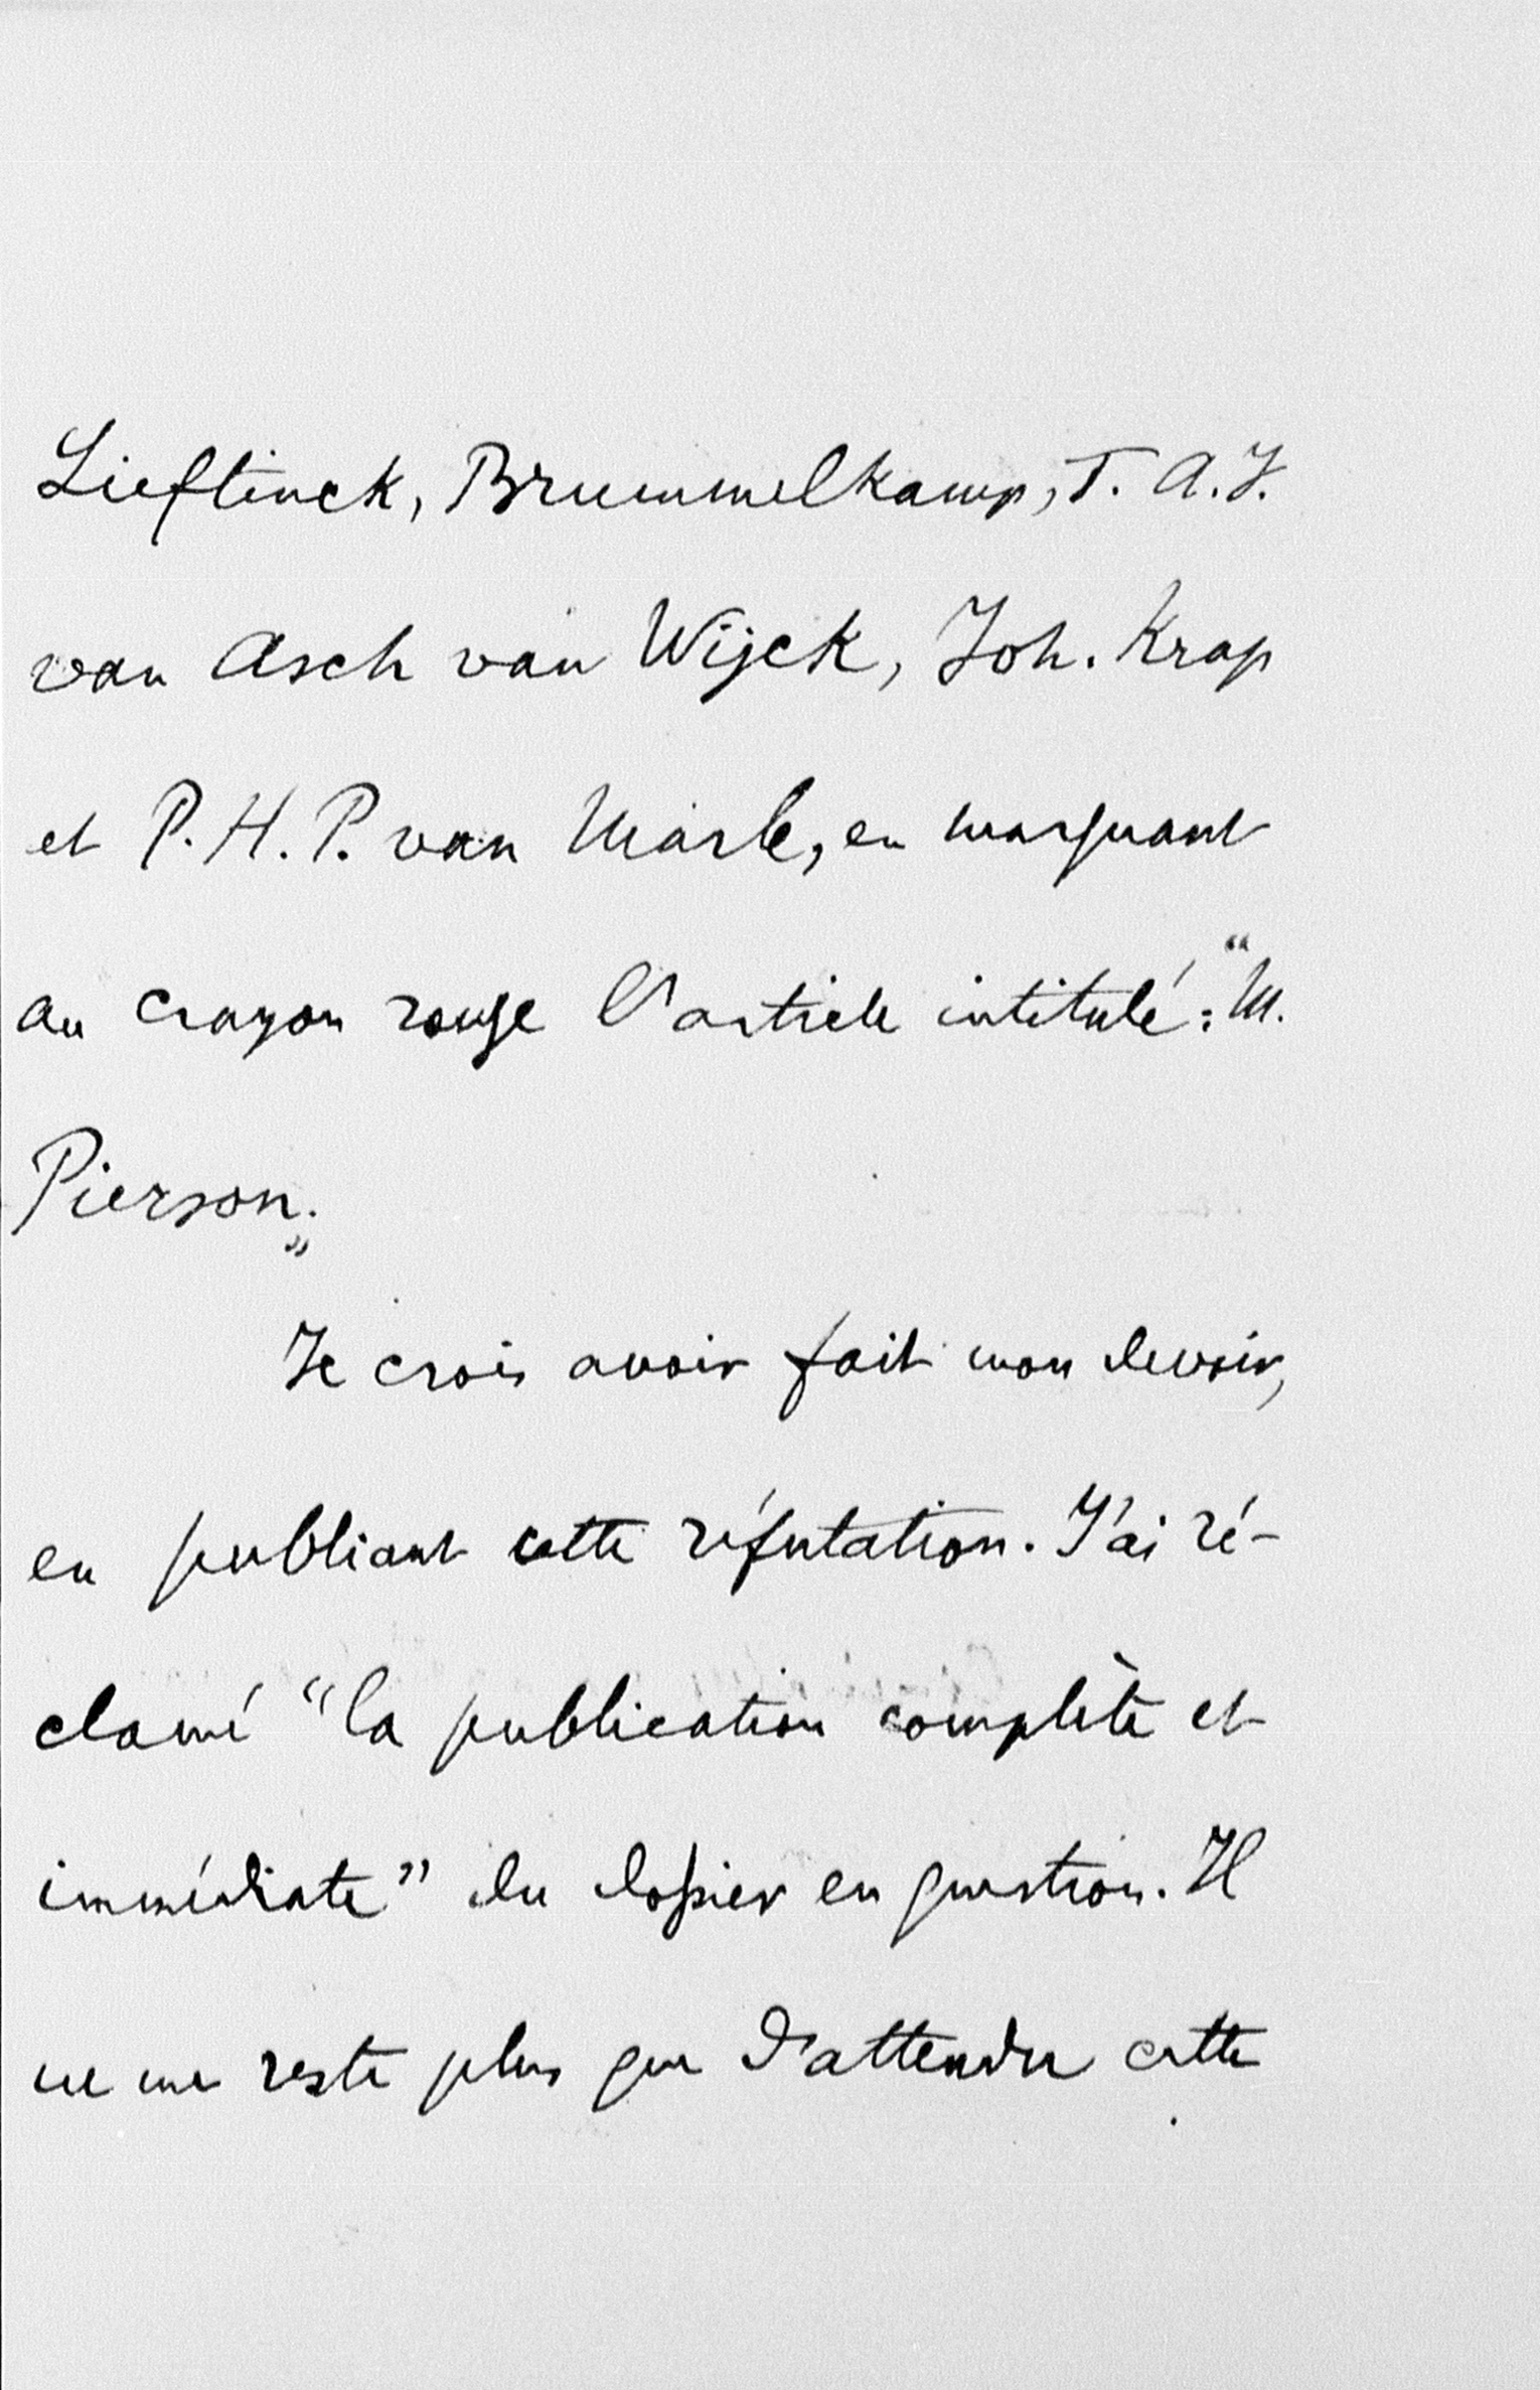 Lieftinck, Brummelkamp, T. A. J.
van Asch van Wijck, Joh. Krap
et P. H. P. van Marle, en marquant
au crayon rouge l'article intitulé: “M.
Pierson.”
Je crois avoir fait mon devoir,
en publiant cette réfutation. J'ai ré-
clamé “la publication complète et
immédiate” du dossier en question. Il
ne me reste plus que d'attendre cette